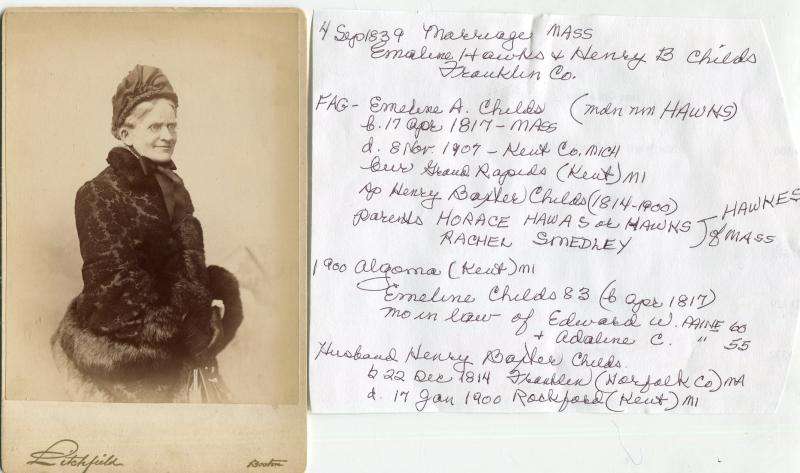 Litchfield
Boston
4 Sep 1839 Marriage MASS
Emaline Hawks & Henry B Childs
Franklin Co.
FAG- Emeline A. Childs (mdn nm HAWNS)
b. 17 Apr 1817 - MASS
d. 8 Nov 1907 - Kent Co. MICH
bur Grand Rapids (Kent) MI
sp Henry Baxter Childs (1814-1900)
parents HORACE HAWAS or HAWNS
RACHEL SMEDLEY
HAWKES
of MASS
1900 Algoma (Kent) MI
Emeline Childs 83 (b Apr 1817)
mo in law of Edward W. PAINE 60
+ Adaline C. " 55
Husband Henry Baxter Childs
b 22 Dec 1814 Franklin (Norfolk Co) MA
d. 17 Jan 1900 Rockford (Kent) MI